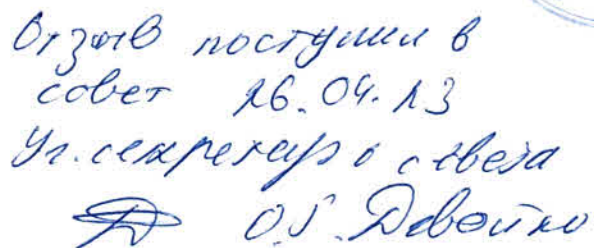 Отзыв поступил в
совет 26.04.23
Уч. секретарь совета
О.Г. Девойно